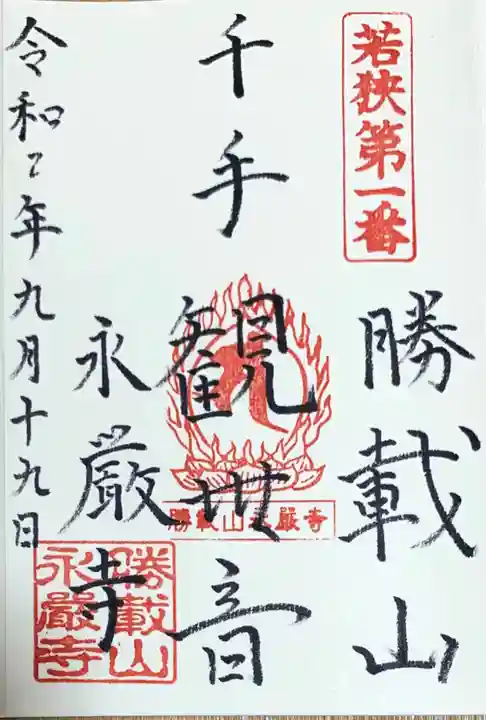 若狭第一番
勝載山
千手観世音
勝載山永厳寺
永厳寺
勝載山
永巖寺
令和2年九月十九日